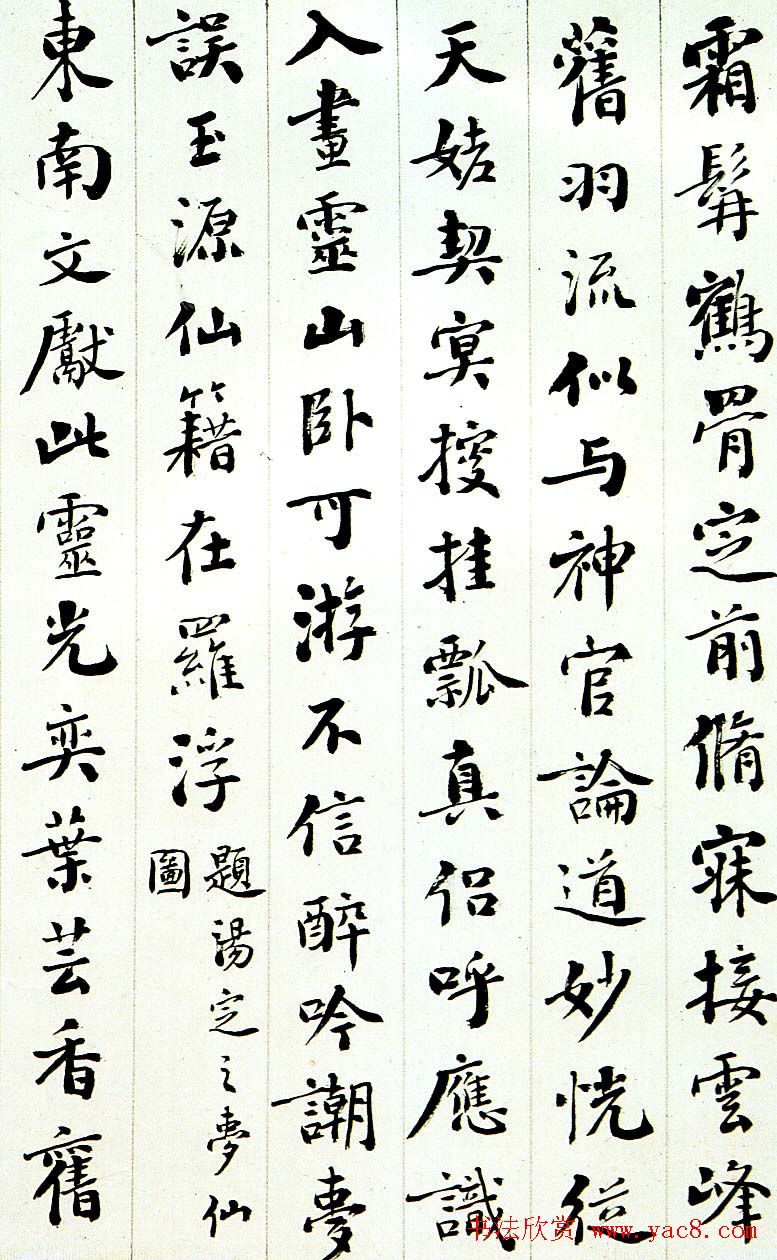 霜髯鶴骨定前脩寐接雲峰
舊羽流似与神官論道妙恍從
天姥契冥搜挂瓢真侣呼應識
入畫靈山卧可游不信醉吟謿夢
誤玉源仙籍在羅浮
題湯定之夢仙
圖
東南文獻此靈光奕葉芸香舊
书法欣赏 www.yac8.com